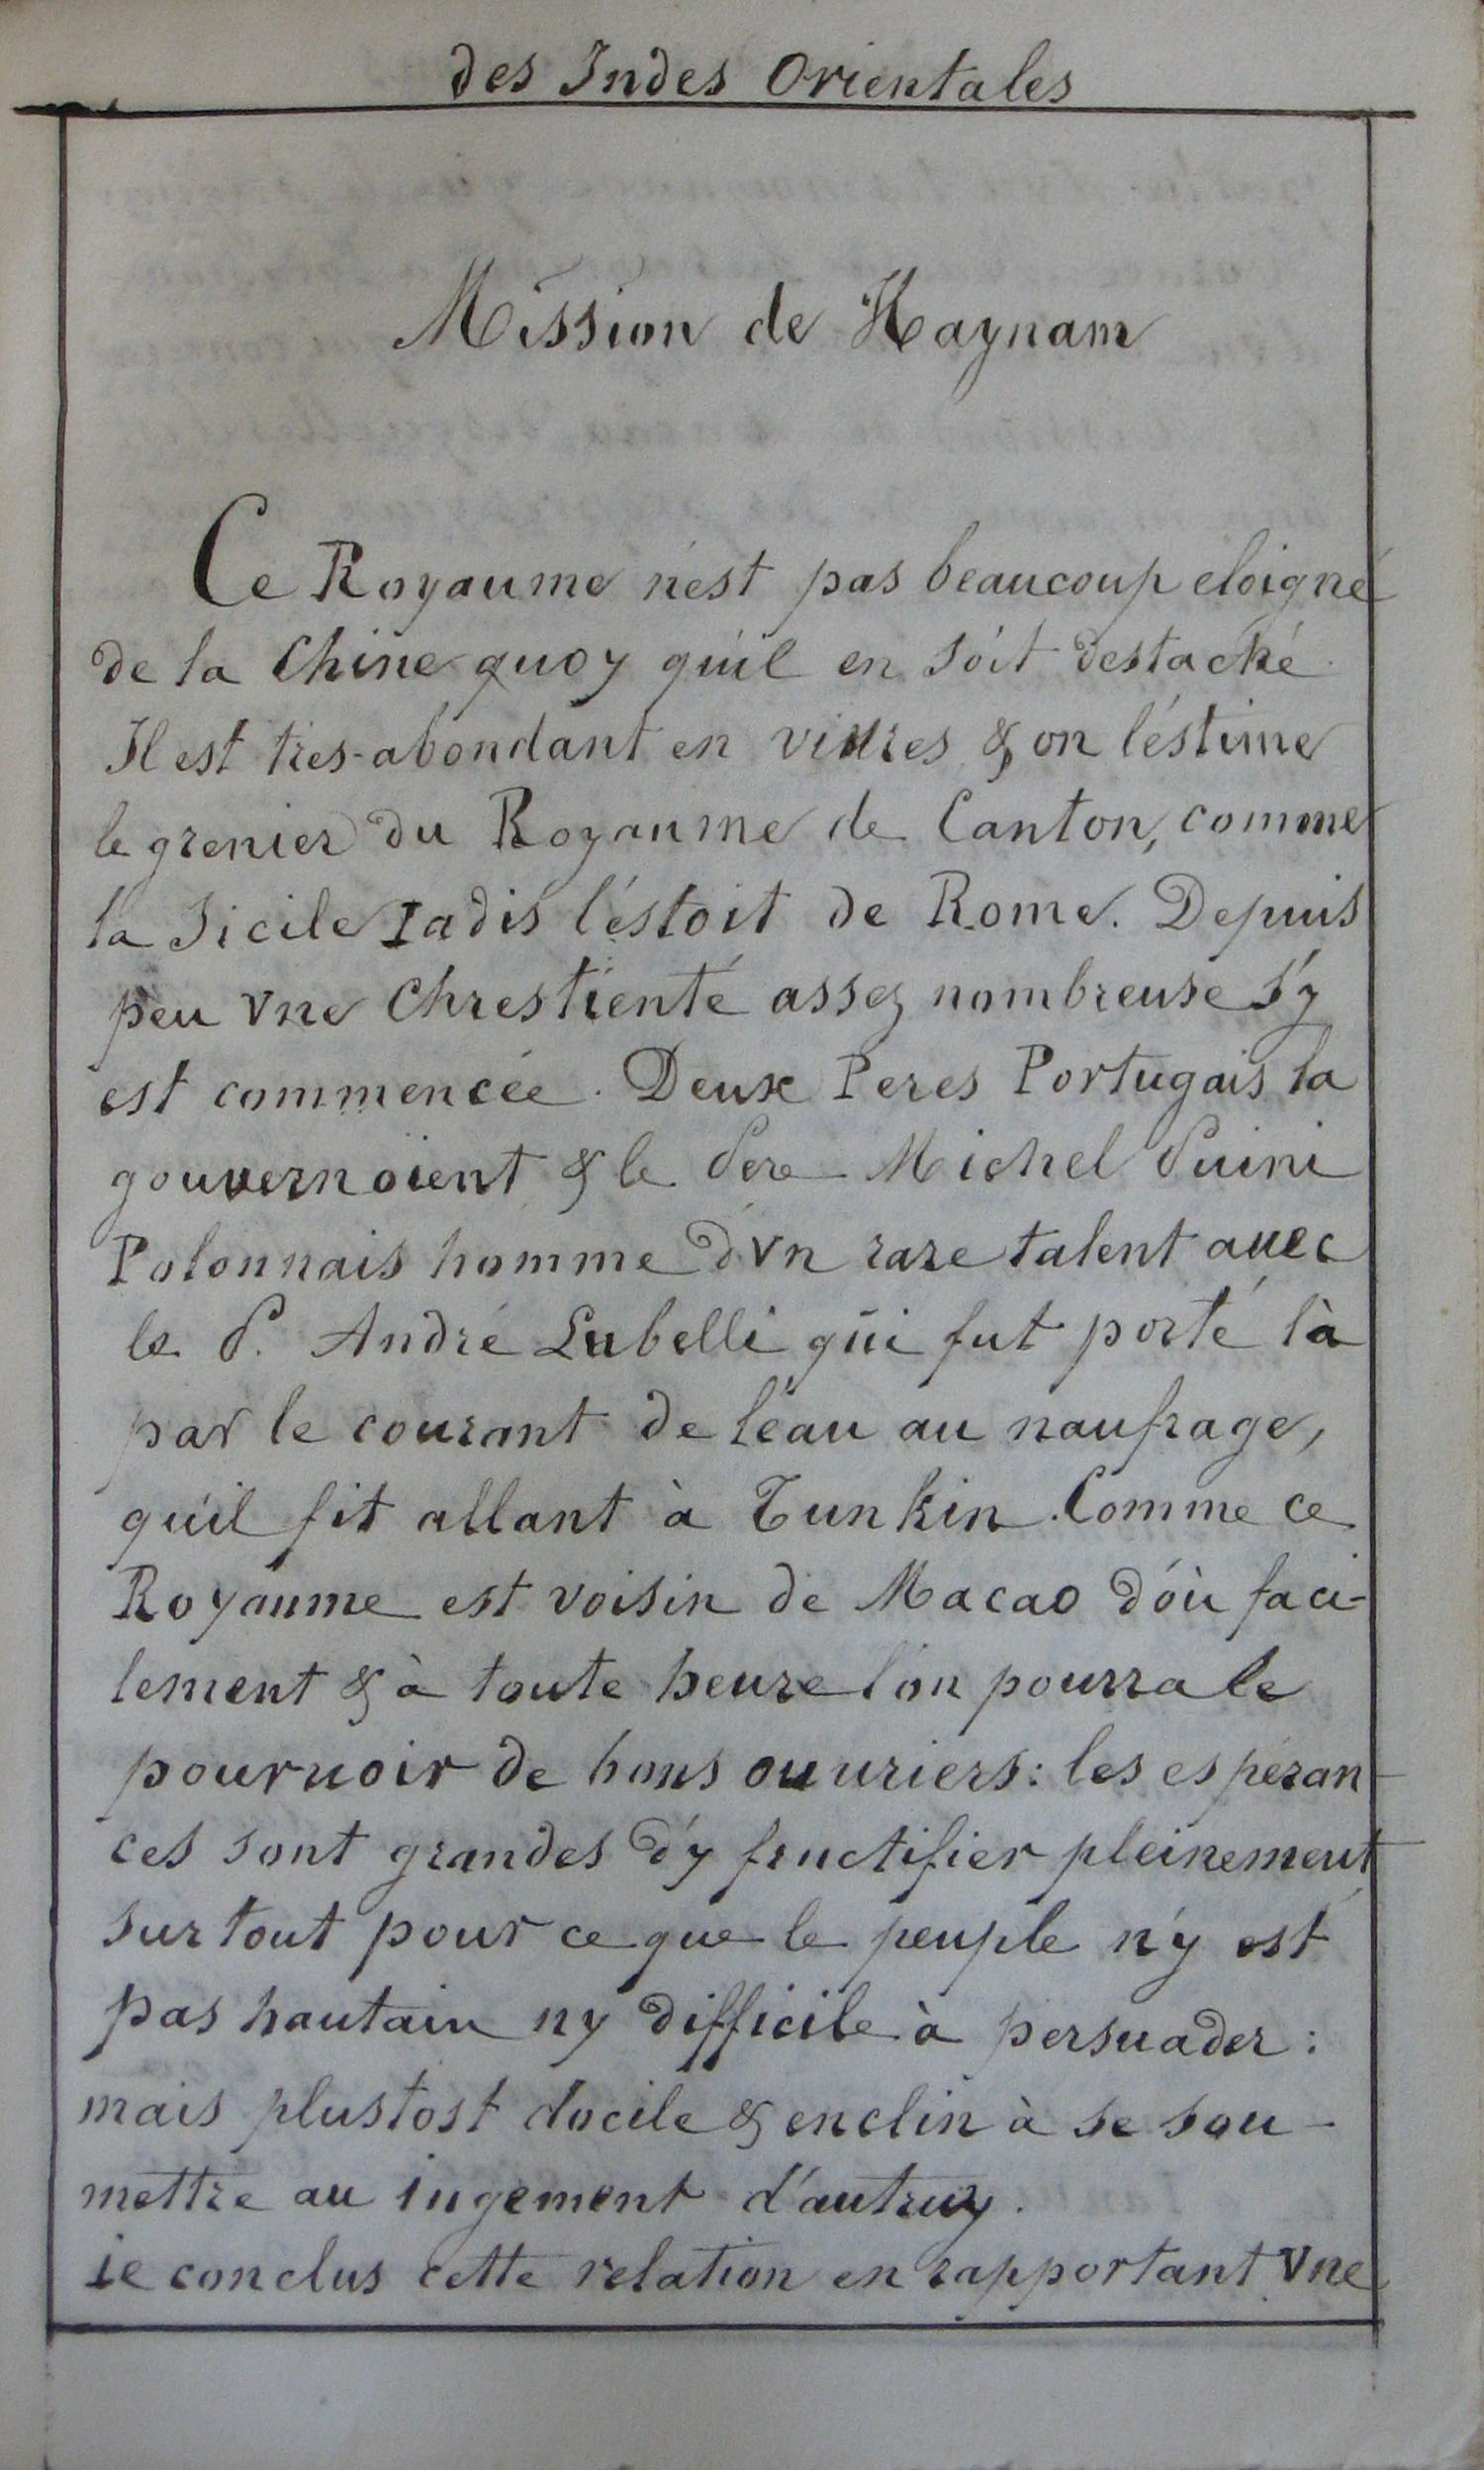 des Indes Orientales
Mission de Haynam
Ce Royaume n'est pas beaucoup eloigné
de la Chine quoy qu'il en soit destaché
Il est tres-abondant en viures & on l'estime
le grenier du Royaume de Canton, comme
la Sicile Iadis l'estoit de Rome. Depuis
peu vne Chrestienté assez nombreuse s'y
est commencée. Deux Peres Portugais la
gouvernoient & le Pere Michel Puini
Polonnais homme d'vn rare talent auec
le P. André Lubelli qui fut porté là
par le courant de l'eau au naufrage,
qu'il fit allant à Tunkin. Comme ce
Royaume est voisin de Macao d'où faci-
lement & à toute heure l'on pourra le
pouruoir de bons ouuriers: les esperan-
ces sont grandes d'y fructifier pleinement
surtout pour ce que le peuple n'y est
pas hautain ny difficile à persuader:
mais plustost docile & enclin à se sou-
mettre au iugement d'autruy.
ie conclus cette relation en rapportant vne